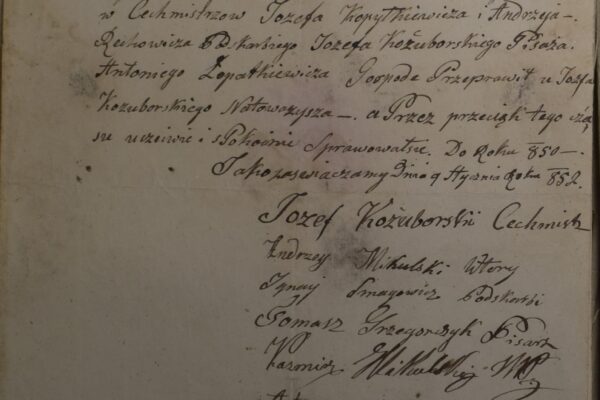 w Cechmistrzow Jozefa Kopytkiewicza i Andrzeja —.
Rechowicza Podskarbiego Jozefa Kożuborskiego Pisaża.
Antoniego Łopatkiewicza Gospode Przeprawił u Jozfa
Kozuborskiego Notowazysza —. a Przez przeciąk tego czą
su uczciwie i Spokoinie Sprawowałsie. Do Roku 850 —.
Jako zaswiaczamy Dnia 9 Stycznia Roku 852.
Jozef Kożuborski Cechmistz
Andrzey Mikulski Wtory
Ignay Smagowicz Podskarbi
Tomasz Grzegorczyk Pisarz
Kazmierz Mikulski